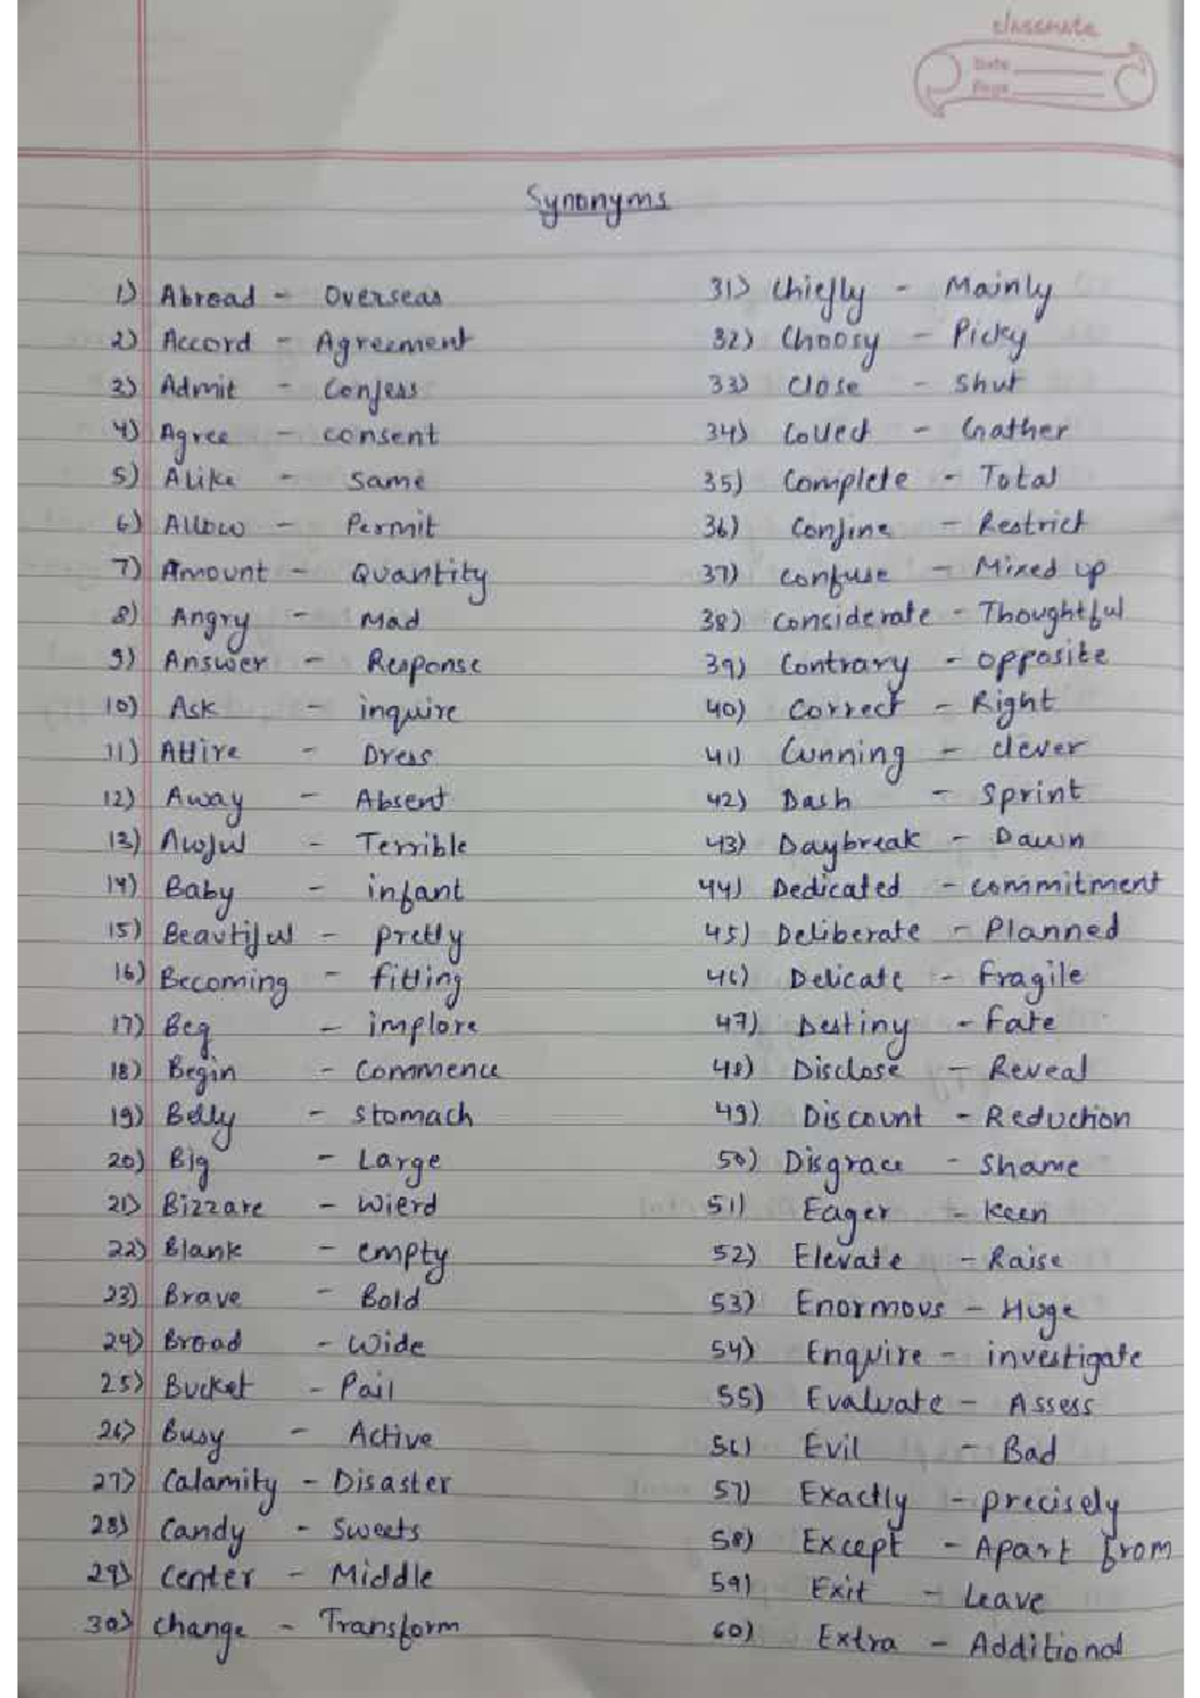 classmate
Date
Page
Synonyms
1) Abroad - Overseas
2) Accord - Agreement
3) Admit - Confess
4) Agree - consent
5) Alike - same
6) Allow - Permit
7) Amount - Quantity
8) Angry - Mad
9) Answer - Response
10) Ask - inquire
11) Attire - Dress
12) Away - Absent
13) Awful - Terrible
14) Baby - infant
15) Beautiful - pretty
16) Becoming - fitting
17) Beg - implore
18) Begin - Commence
19) Belly - stomach
20) Big - Large
21) Bizzare - Wierd
22) Blank - empty
23) Brave - Bold
24) Broad - Wide
25) Bucket - Pail
26) Busy - Active
27) Calamity - Disaster
28) Candy - Sweets
29) Center - Middle
30) change - Transform
31) Chiefly - Mainly
32) Choosy - Picky
33) Close - Shut
34) Collect - Gather
35) Complete - Total
36) Confine - Restrict
37) confuse - Mixed up
38) Considerate - Thoughtful
39) Contrary - opposite
40) Correct - Right
41) Cunning - clever
42) Dash - Sprint
43) Daybreak - Dawn
44) Dedicated - commitment
45) Deliberate - Planned
46) Delicate - Fragile
47) Destiny - Fate
48) Disclose - Reveal
49) Discount - Reduction
50) Disgrace - Shame
51) Eager - keen
52) Elevate - Raise
53) Enormous - Huge
54) Enquire - investigate
55) Evaluate - Assess
56) Evil - Bad
57) Exactly - precisely
58) Except - Apart from
59) Exit - Leave
60) Extra - Additional